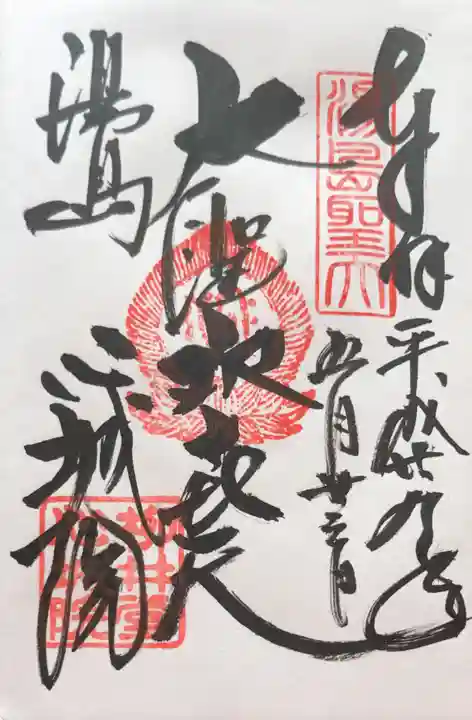 奉拝
平成廿九年
五月廿三日
湯島聖天
大聖歓喜天
湯島
心城院
柳井堂
心城院